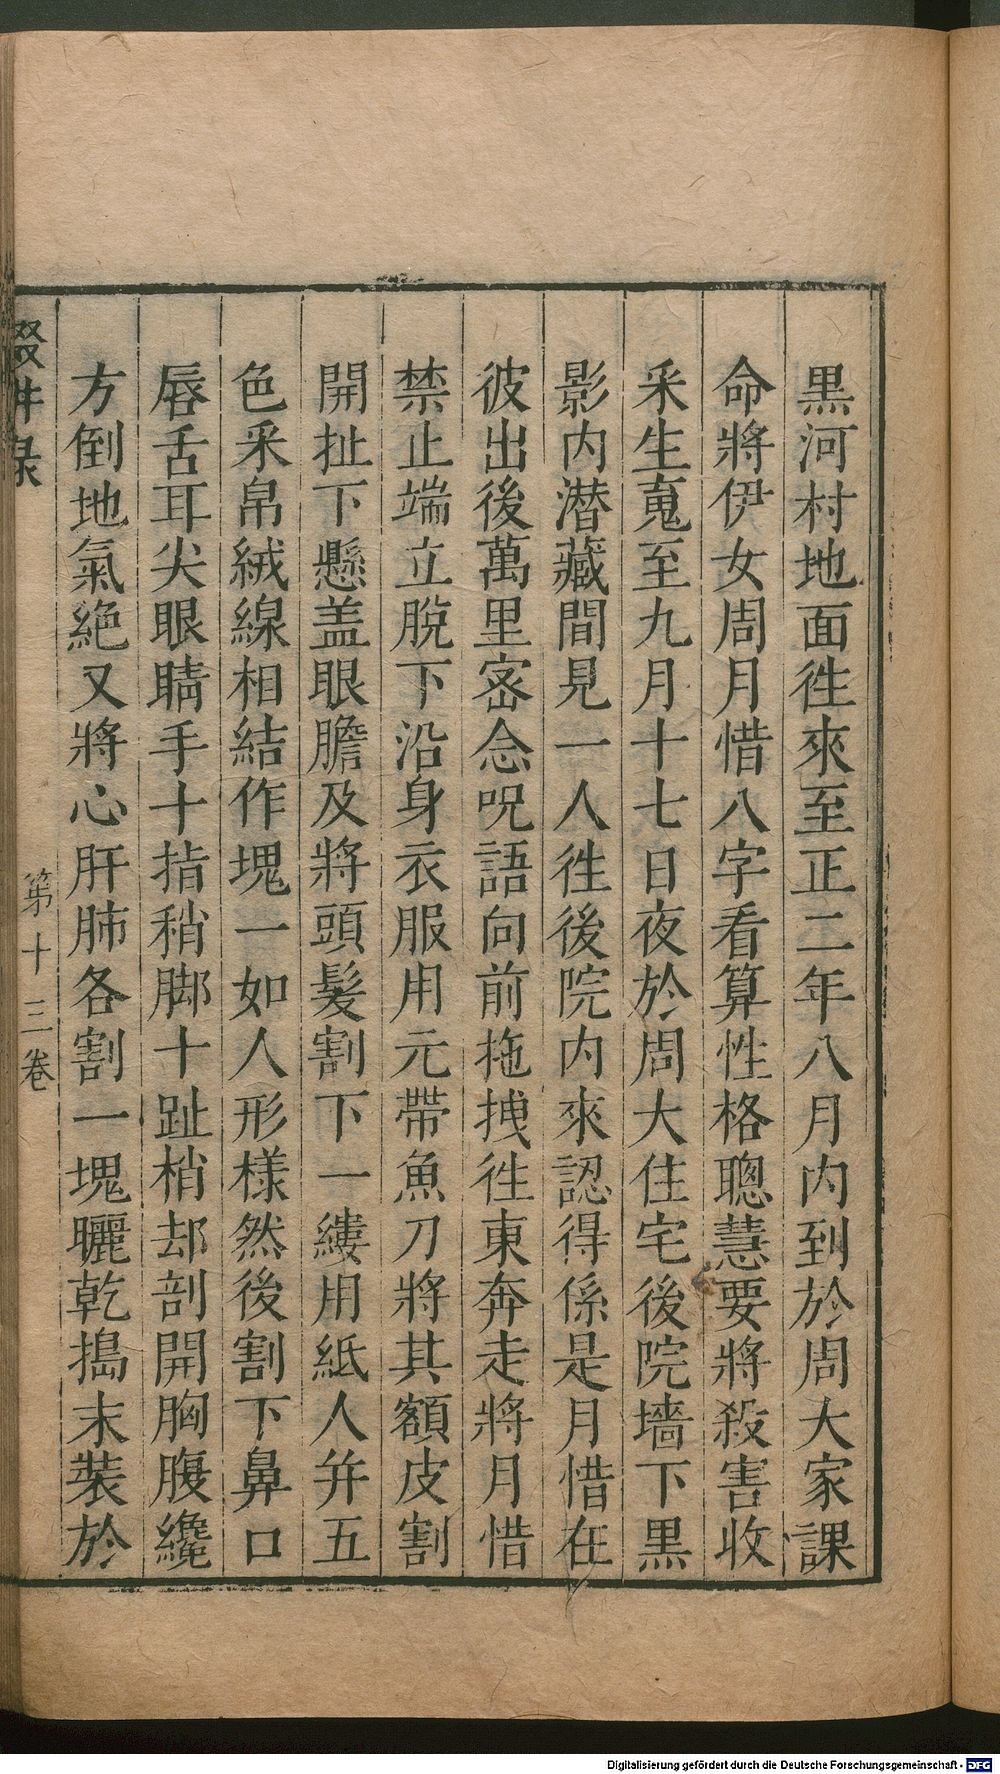 黒河村地面徃來至正二年八月内到於周大家課
命將伊女周月惜八字看算性格聰慧要將殺害收
釆生䰟至九月十七日夜於周大住宅後院墻下黒
影内潜藏間見一人徃後院内來認得係是月惜在
彼出後萬里宻念呪語向前拖拽徃東奔走將月惜
禁止端立脫下沿身衣服用元帶魚刀將其額皮割
開扯下懸盖眼膽及將頭髮割下一縷用紙人并五
色釆帛絨線相結作塊一如人形様然後割下鼻口
唇舌耳尖眼睛手十指稍脚十趾梢却剖開胸腹纔
方倒地氣絶又將心肝肺各割一塊曬乾搗末裝於
輟耕录
第十三卷
Digitalisierung gefördert durch die Deutsche Forschungsgemeinschaft - DFG